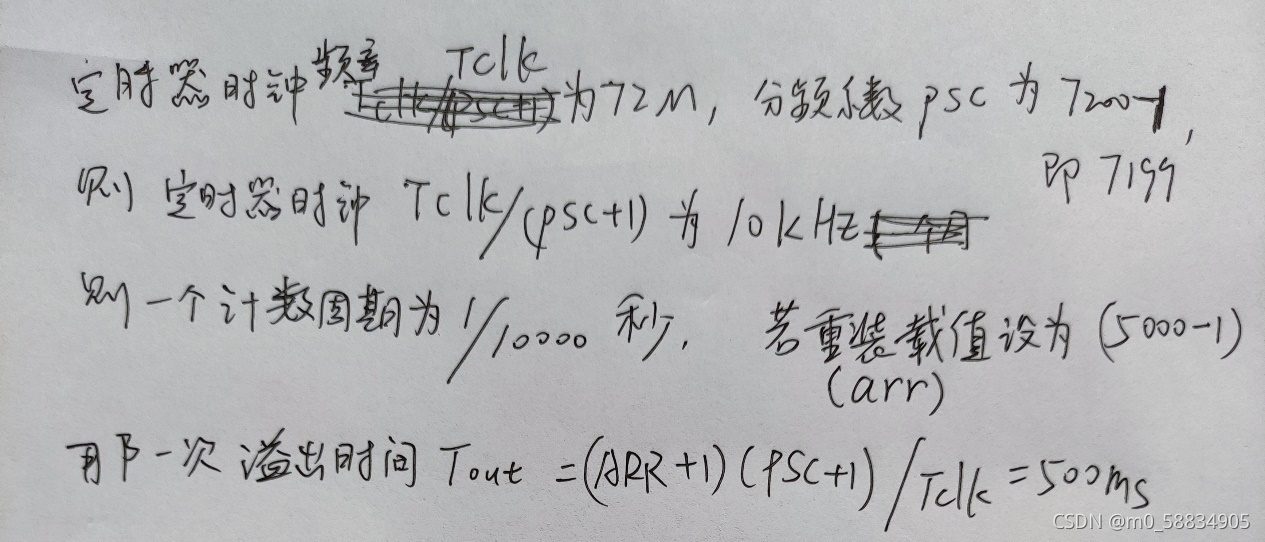 定时器时钟频率Tclk为72M，分频系数psc为7200-1，
即7199
则定时器时钟Tclk/(psc+1)为10kHz
则一个计数周期为1/10000秒，若重装载值设为(5000-1)
(arr)
那一次溢出时间Tout=(ARR+1)(PSC+1)/Tclk=500ms
CSDN @m0_58834905